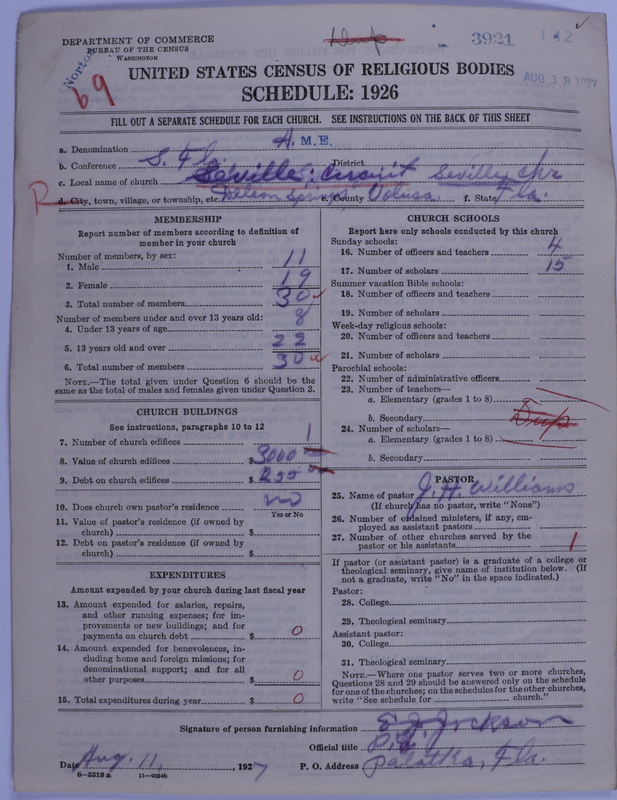 DEPARTMENT OF COMMERCE
BUREAU OF THE CENSUS
WASHINGTON
3921
1 2
Norton
69
AUG 18 1927
UNITED STATES CENSUS OF RELIGIOUS BODIES
SCHEDULE: 1926
FILL OUT A SEPARATE SCHEDULE FOR EACH CHURCH. SEE INSTRUCTIONS ON THE BACK OF THIS SHEET
a. Denomination A. M.E.
b. Conference S. Fla District
c. Local name of church Seville: Circuit Seville
R d. City, town, village, or township, etc. DeLeon Springs e. County Volusa f. State Fla.
MEMBERSHIP
Report number of members according to definition of member in your church
Number of members, by sex:
1. Male 11
2. Female 19
3. Total number of members 30
Number of members under and over 13 years old:
4. Under 13 years of age 8
5. 13 years old and over 22
6. Total number of members 30
NOTE.—The total given under Question 6 should be the same as the total of males and females given under Question 3.
CHURCH BUILDINGS
See instructions, paragraphs 10 to 12
7. Number of church edifices 1
8. Value of church edifices $ 3000
9. Debt on church edifices $ 255
10. Does church own pastor's residence no
Yes or No
11. Value of pastor's residence (if owned by
church) $
12. Debt on pastor's residence (if owned by
church) $
EXPENDITURES
Amount expended by your church during last fiscal year
13. Amount expended for salaries, repairs,
and other running expenses; for im-
provements or new buildings; and for
payments on church debt $ 0
14. Amount expended for benevolences, in-
cluding home and foreign missions; for
denominational support; and for all
other purposes $ 0
15. Total expenditures during year $ 0
CHURCH SCHOOLS
Report here only schools conducted by this church
Sunday schools:
16. Number of officers and teachers 4
17. Number of scholars 15
Summer vacation Bible schools:
18. Number of officers and teachers
19. Number of scholars
Week-day religious schools:
20. Number of officers and teachers
21. Number of scholars
Parochial schools:
22. Number of administrative officers
23. Number of teachers—
a. Elementary (grades 1 to 8)
b. Secondary Dup
24. Number of scholars—
a. Elementary (grades 1 to 8)
b. Secondary
PASTOR
25. Name of pastor J. H. Williams
(If church has no pastor, write "None")
26. Number of ordained ministers, if any, em-
ployed as assistant pastors
27. Number of other churches served by the
pastor or his assistants 1
If pastor (or assistant pastor) is a graduate of a college or
theological seminary, give name of institution below. (If
not a graduate, write "No" in the space indicated.)
Pastor:
28. College
29. Theological seminary
Assistant pastor:
30. College
31. Theological seminary
NOTE.—Where one pastor serves two or more churches,
Questions 28 and 29 should be answered only on the schedule
for one of the churches; on the schedules for the other churches,
write "See schedule for church."
Signature of person furnishing information E. J. Jackson
Official title P.E.
Date Aug. 11, 1927 P. O. Address Palatka, Fla.
8—5518a 11—9024b